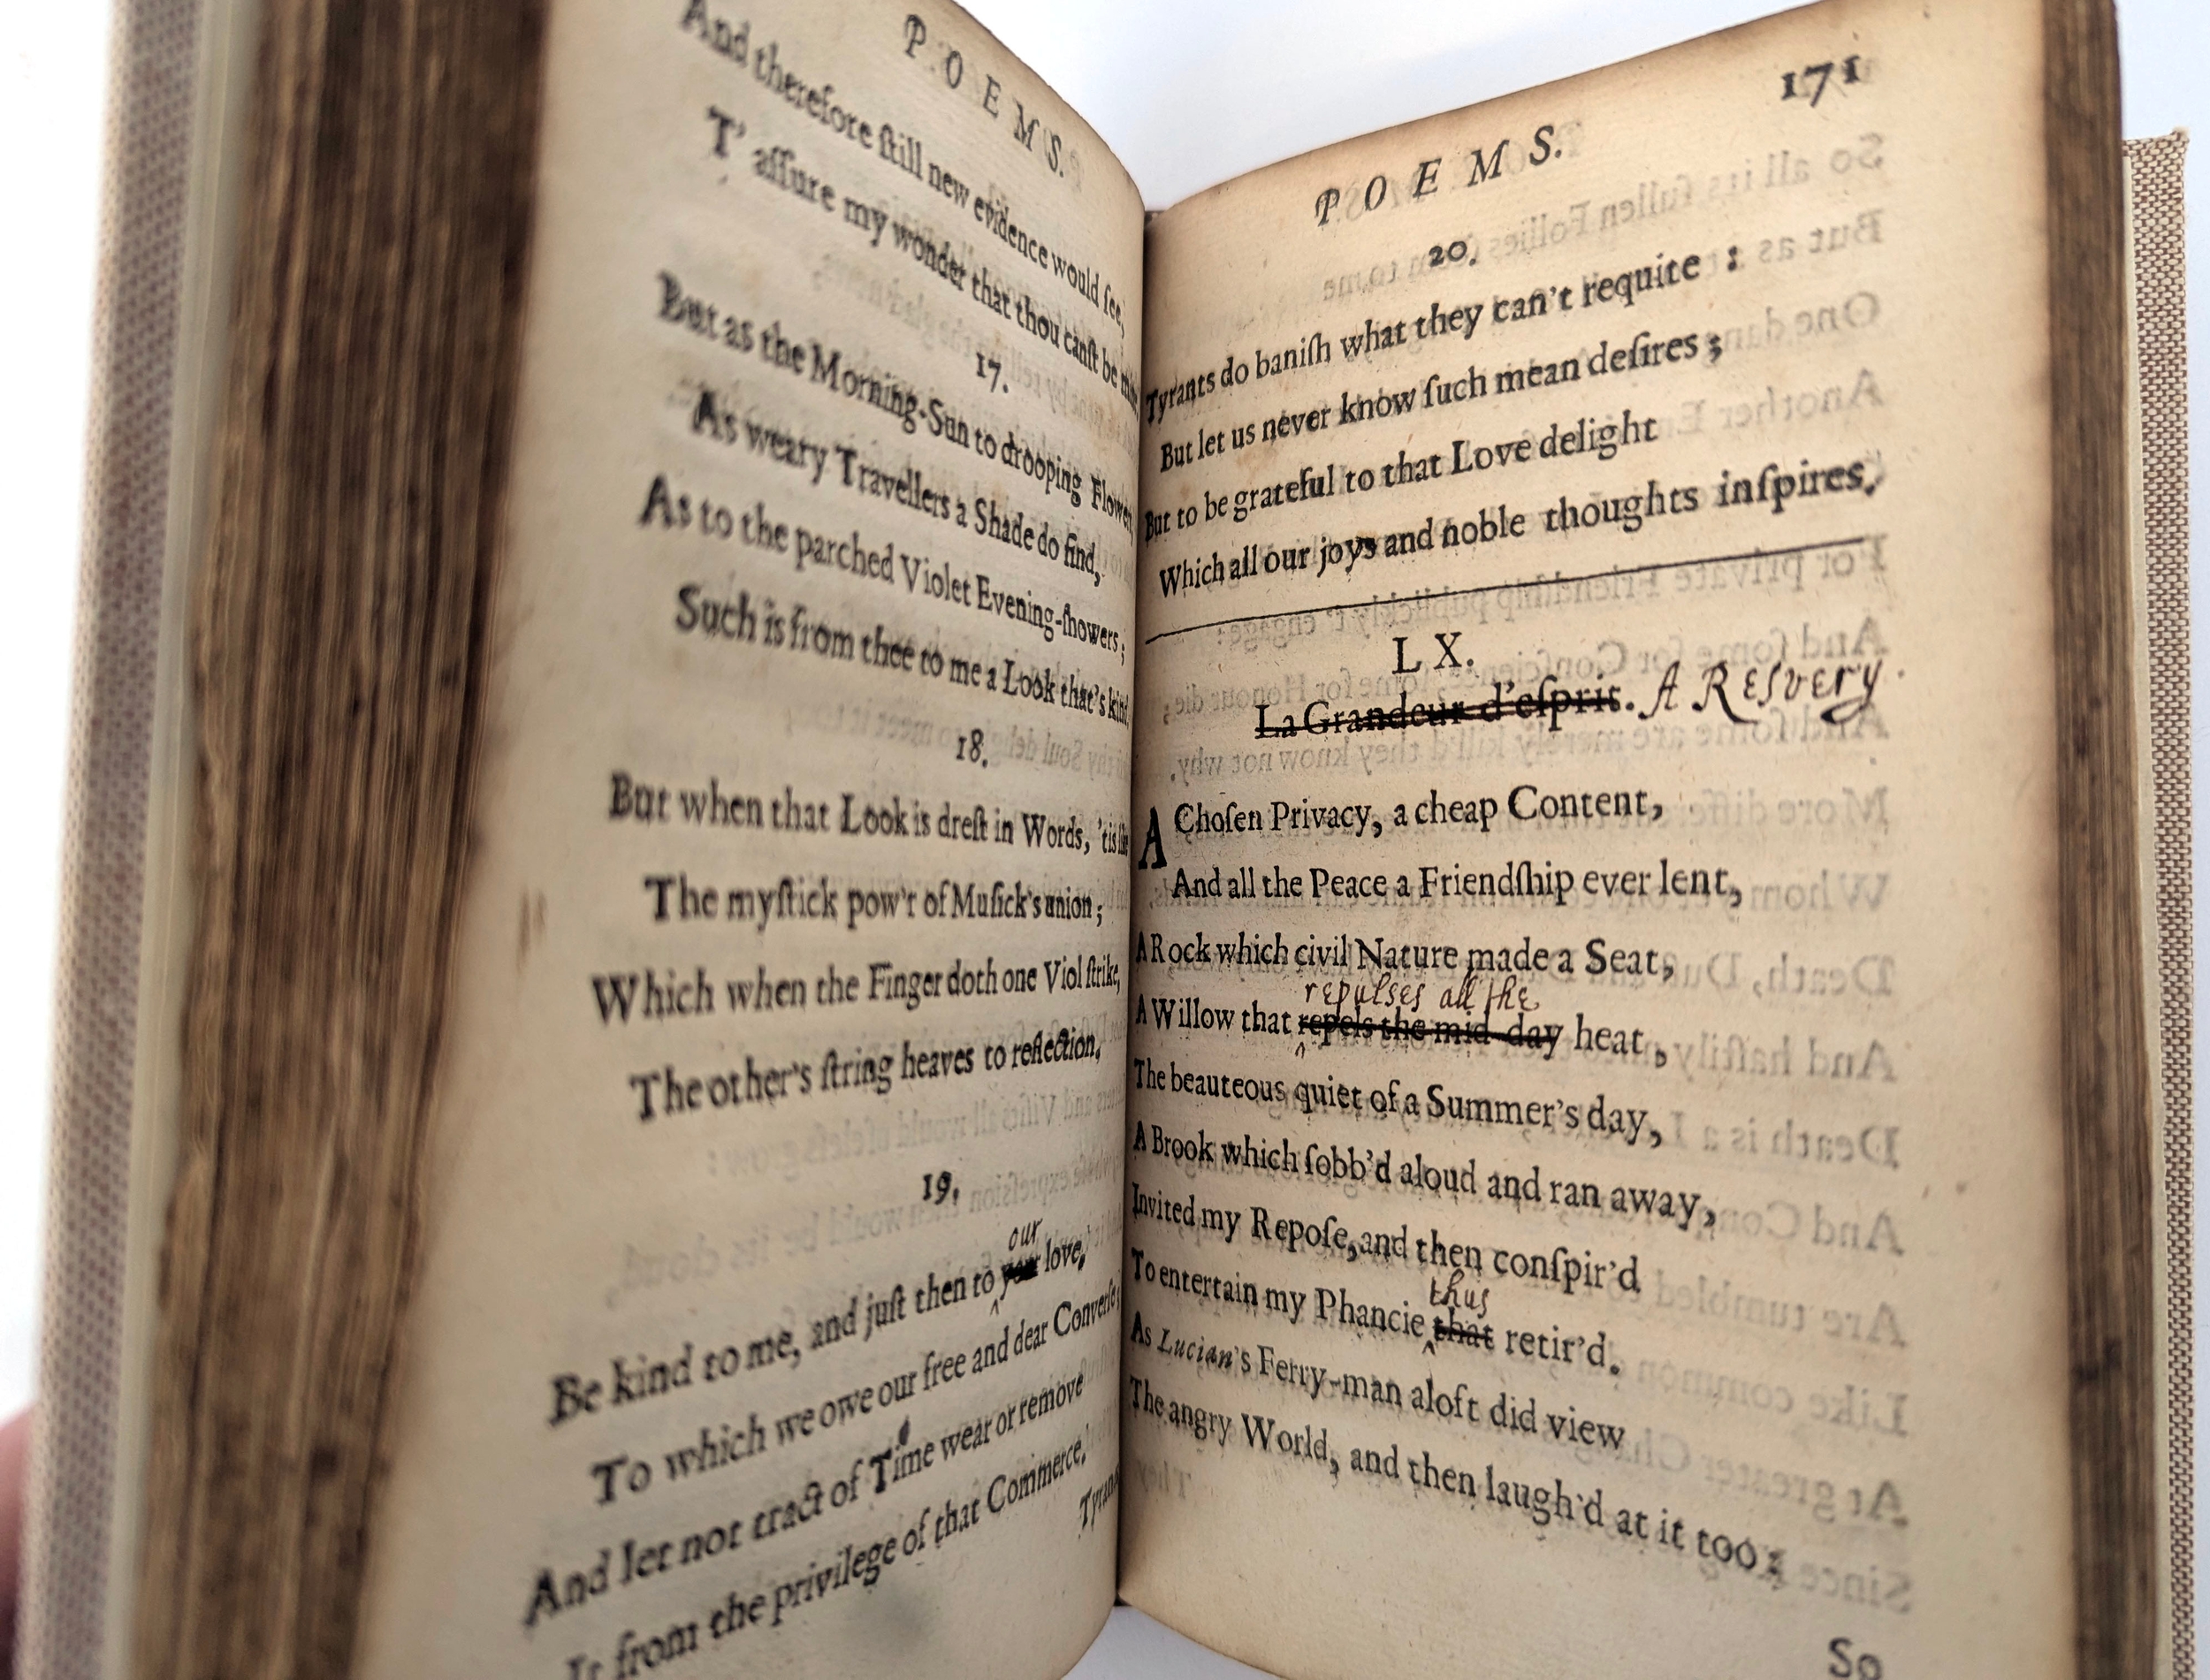 POEMS.
And therefore ſtill new evidence would ſee,
T' aſſure my wonder that thou canſt be
17.
But as the Morning-Sun to drooping Flowers,
As weary Travellers a Shade do find,
As to the parched Violet Evening-ſhowers;
Such is from thee to me a Look that's kind
18.
But when that Look is dreſt in Words, 'tis like
The myſtick pow'r of Muſick's union;
Which when the Finger doth one Viol ſtrike,
The other's ſtring heaves to reflection.
19.
our
Be kind to me, and juſt then to your love,
To which we owe our free and dear Converſe;
And let not tract of Time wear or remove
It from the privilege of that Commerce.
Tyrants
171
POEMS.
20.
Tyrants do baniſh what they can't requite:
But let us never know ſuch mean deſires;
But to be grateful to that Love delight
Which all our joys and noble thoughts inſpires.
LX.
La Grandeur d'eſprit. A Resvery
A Choſen Privacy, a cheap Content,
And all the Peace a Friendſhip ever lent,
A Rock which civil Nature made a Seat,
repulses all the
A Willow that repels the mid-day heat,
The beauteous quiet of a Summer's day,
A Brook which ſobb'd aloud and ran away,
Invited my Repoſe, and then conſpir'd
thus
To entertain my Phancie that retir'd.
As Lucian's Ferry-man aloft did view
The angry World, and then laugh'd at it too:
So